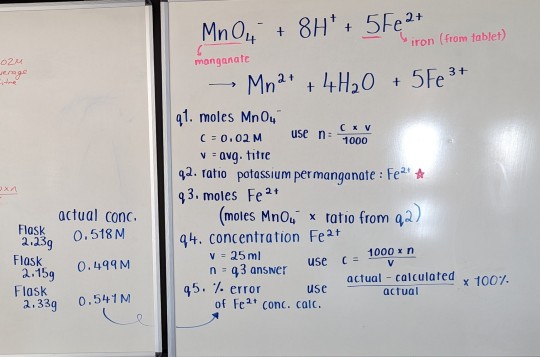 02M
erage
itre
actual conc.
Flask 2.23g 0.518M
Flask 2.15g 0.499M
Flask 2.33g 0.541M
MnO₄⁻ + 8H⁺ + 5Fe²⁺
manganate
iron (from tablet)
→ Mn²⁺ + 4H₂O + 5Fe³⁺
q1. moles MnO₄⁻
c = 0.02M use n = c x v / 1000
v = avg. titre
q2. ratio potassium permanganate : Fe²⁺ ★
q3. moles Fe²⁺
(moles MnO₄⁻ x ratio from q2)
q4. concentration Fe²⁺
v = 25ml
n = q3 answer use c = 1000 x n / v
q5. % error use actual - calculated / actual x 100%
of Fe²⁺ conc. calc.